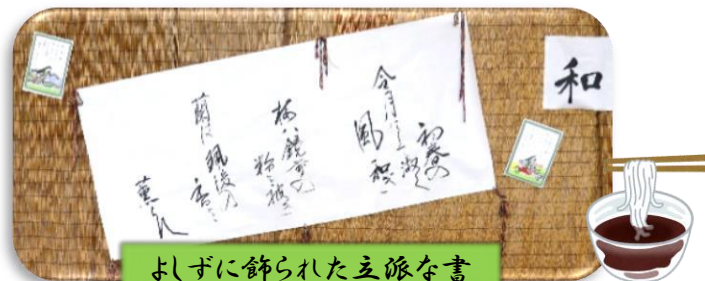 初春の
令月にして
淑く
風和ぎ
梅は鏡前の
粉を披き
蘭は珮後の
香を
薫らす
和
よしずに飾られた立派な書